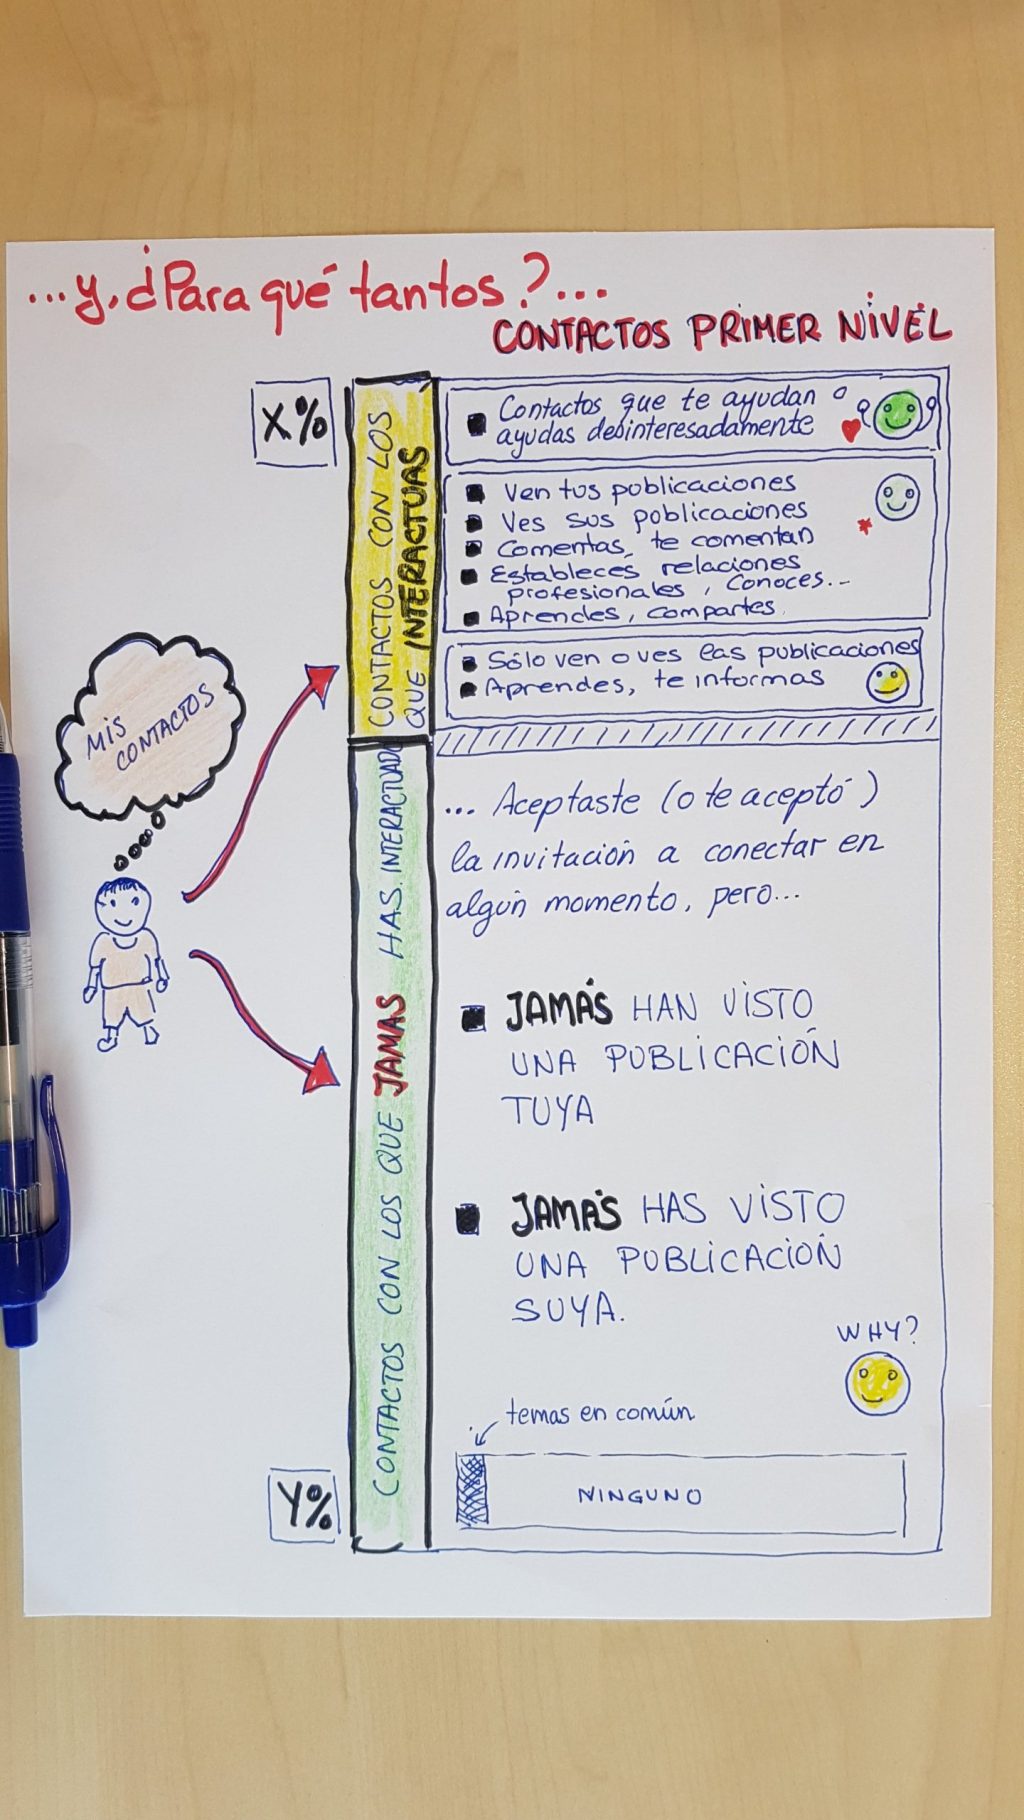 ...y, ¿Para qué tantos?...
CONTACTOS PRIMER NIVEL
X%
CONTACTOS CON LOS
QUE INTERACTUAS
Contactos que te ayudan o
ayudas desinteresadamente
Ven tus publicaciones
Ves sus publicaciones
Comentas, te comentan
Estableces relaciones
profesionales, Conoces...
Aprendes, compartes.
Sólo ven o ves las publicaciones
Aprendes, te informas
MIS
CONTACTOS
CONTACTOS CON LOS QUE JAMAS HAS INTERACTUADO
... Aceptaste (o te aceptó)
la invitación a conectar en
algún momento, pero...
JAMÁS HAN VISTO
UNA PUBLICACIÓN
TUYA
JAMÁS HAS VISTO
UNA PUBLICACIÓN
SUYA.
WHY?
temas en común
NINGUNO
Y%